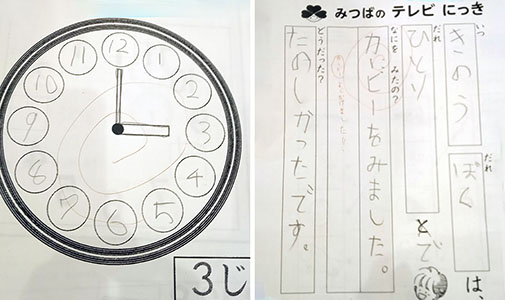 12
1
2
3
4
5
6
7
8
9
10
11
3じ
みつばの テレビ にっき
いつ
きのう
だれ
ぼく
は
だれ
ひとり
と で
なにを みたの?
カービーをみました。
どうだった?
たのしかったです。